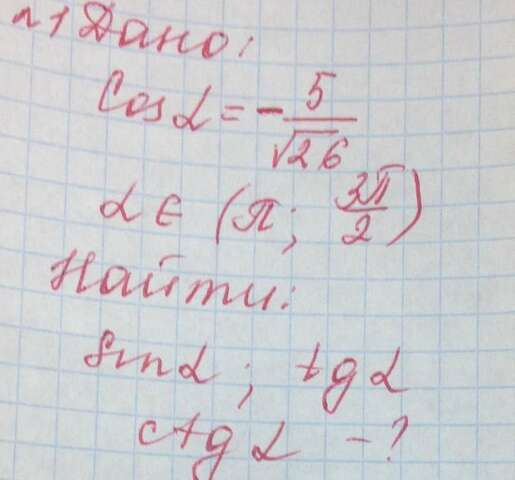 №1 Дано:
Cos α = - 5/√26
α ∈ (π; 3π/2)
Найти:
Sin α; tg α
ctg α - ?